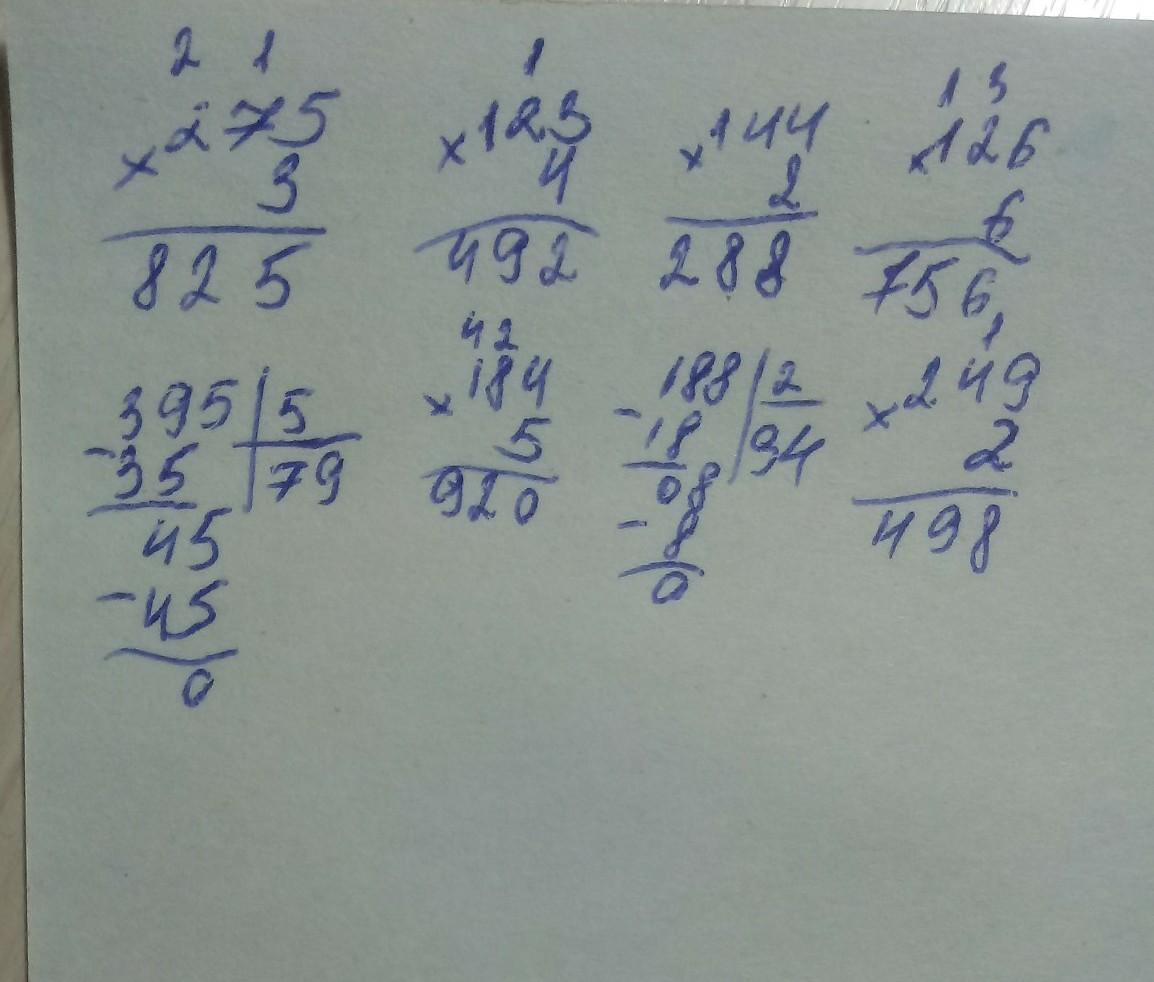 2 1 1 1 3
×275 ×123 ×144 ×126
3 4 2 6
825 492 288 756
42 1
-395|5 ×184 -188|2 ×249
35|79 5 18|94 2
45 920 08 498
-45 -8
0 0